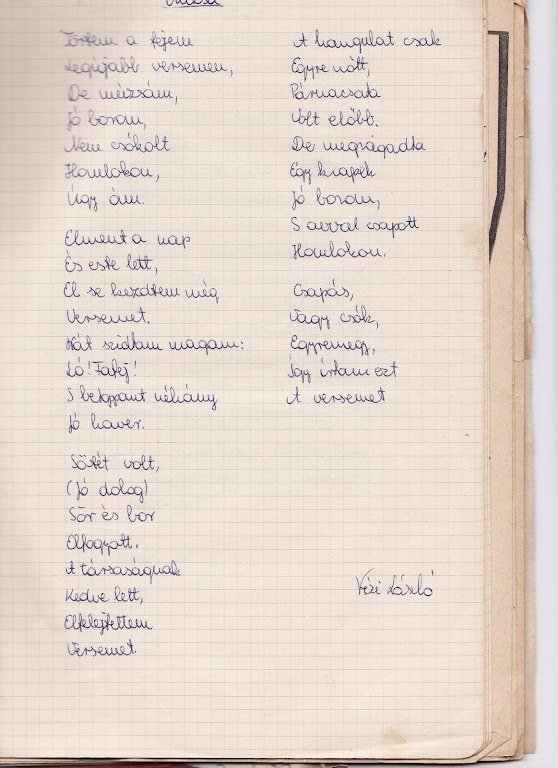 Törtem a fejem
Legújabb versemen,
De múzsám,
Jó borom,
Nem csókolt
Homlokon,
Úgy ám.
Elment a nap
És este lett,
El se kezdtem még
Versemet.
Hát szidtam magam:
Ló! Fafej!
S betoppant néhány
Jó haver.
Sötét volt,
(Jó dolog)
Sör és bor
Elfogyott.
A társaságnak
Kedve lett,
Elfelejtettem
Versemet.
A hangulat csak
Egyre nőtt,
Párnacsata
Volt előbb.
De megragadta
Egy krapek
Jó borom,
S avval csapott
Homlokon.
Csapás,
Vagy csók,
Egyremegy,
Így írtam ezt
A versemet
Vézi László